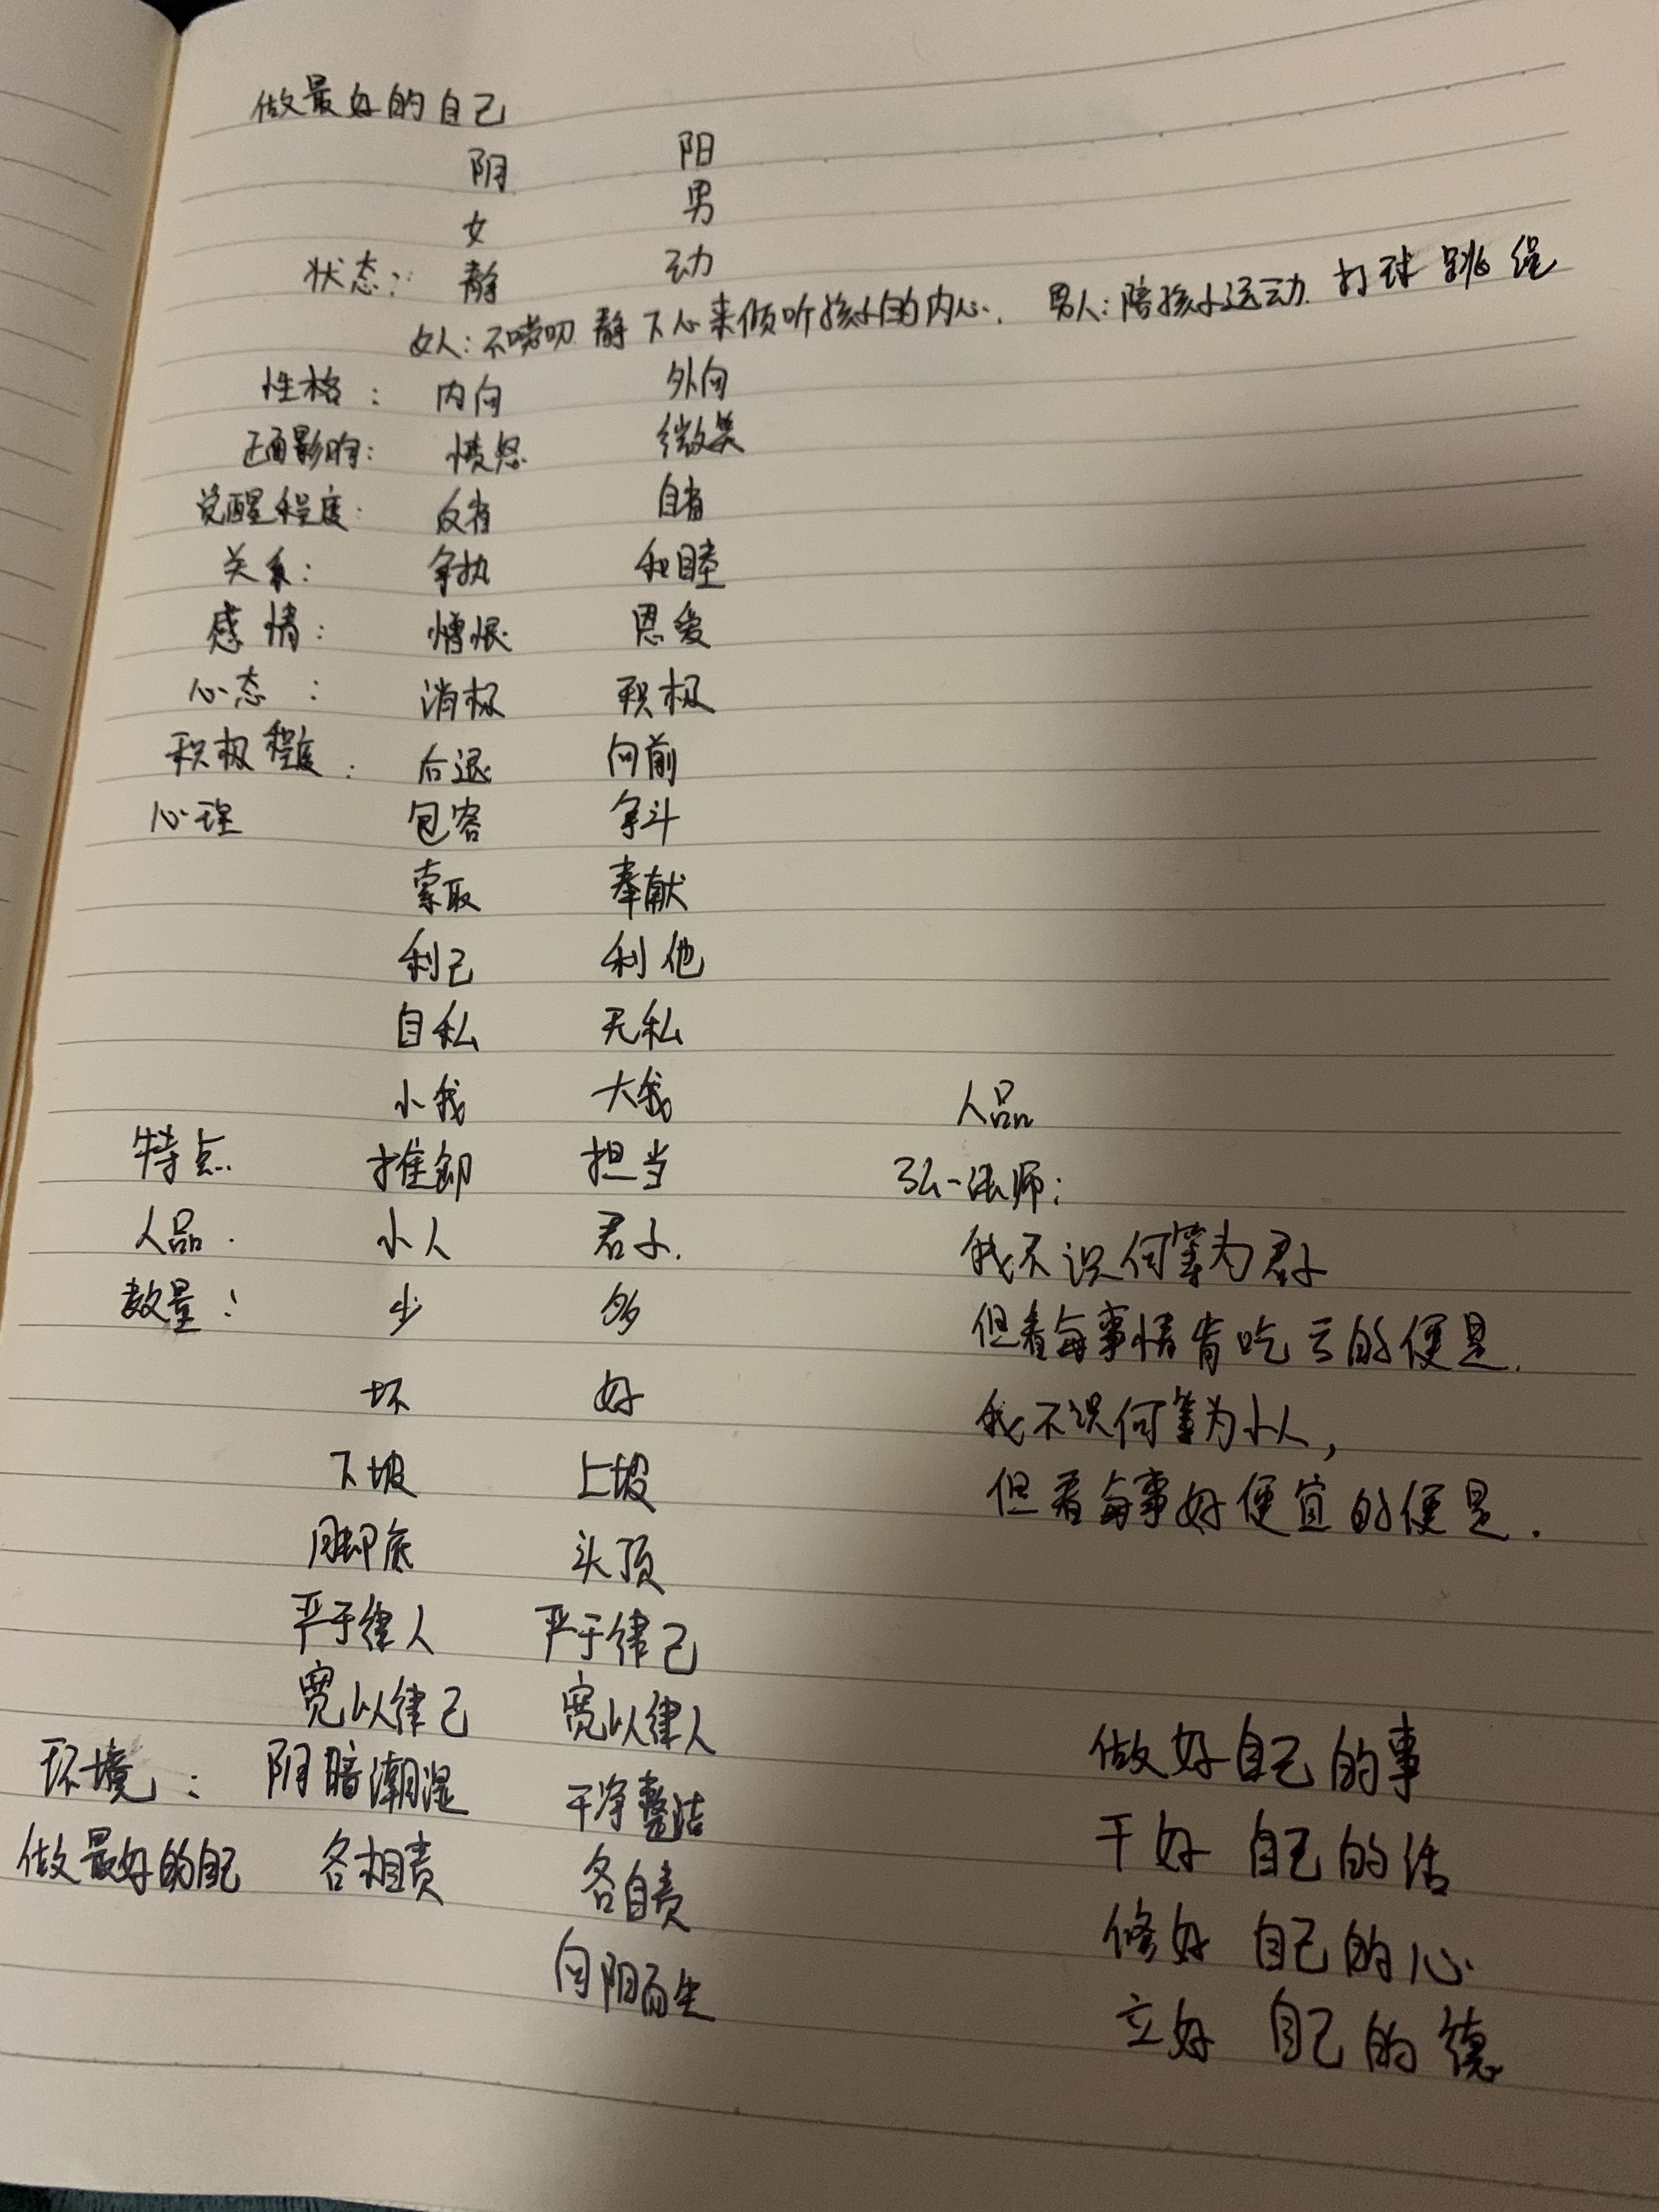 做最好的自己
阴 阳
女 男
状态: 静 动
女人:不唠叨 静下心来倾听孩子的内心. 男人:陪孩子运动. 打球 跳绳
性格: 内向 外向
正面影响: 愤怒 微笑
觉醒程度: 反省 自省
关系: 争执 和睦
感情: 憎恨 恩爱
心态: 消极 积极
积极程度: 后退 向前
心理 包容 争斗
索取 奉献
利己 利他
自私 无私
小我 大我 人品
特点. 推卸 担当 弘一法师:
人品. 小人 君子. 我不识何等为君子
数量: 少 多 但看每事情肯吃亏的便是.
坏 好 我不识何等为小人,
下坡 上坡 但看每事好便宜的便是.
脚底 头顶
严于律人 严于律己
宽以律己 宽以律人 做好自己的事
环境: 阴暗潮湿 干净整洁 干好 自己的活
做最好的自己 各相责 各自责 修好 自己的心
向阳而生 立好 自己的德